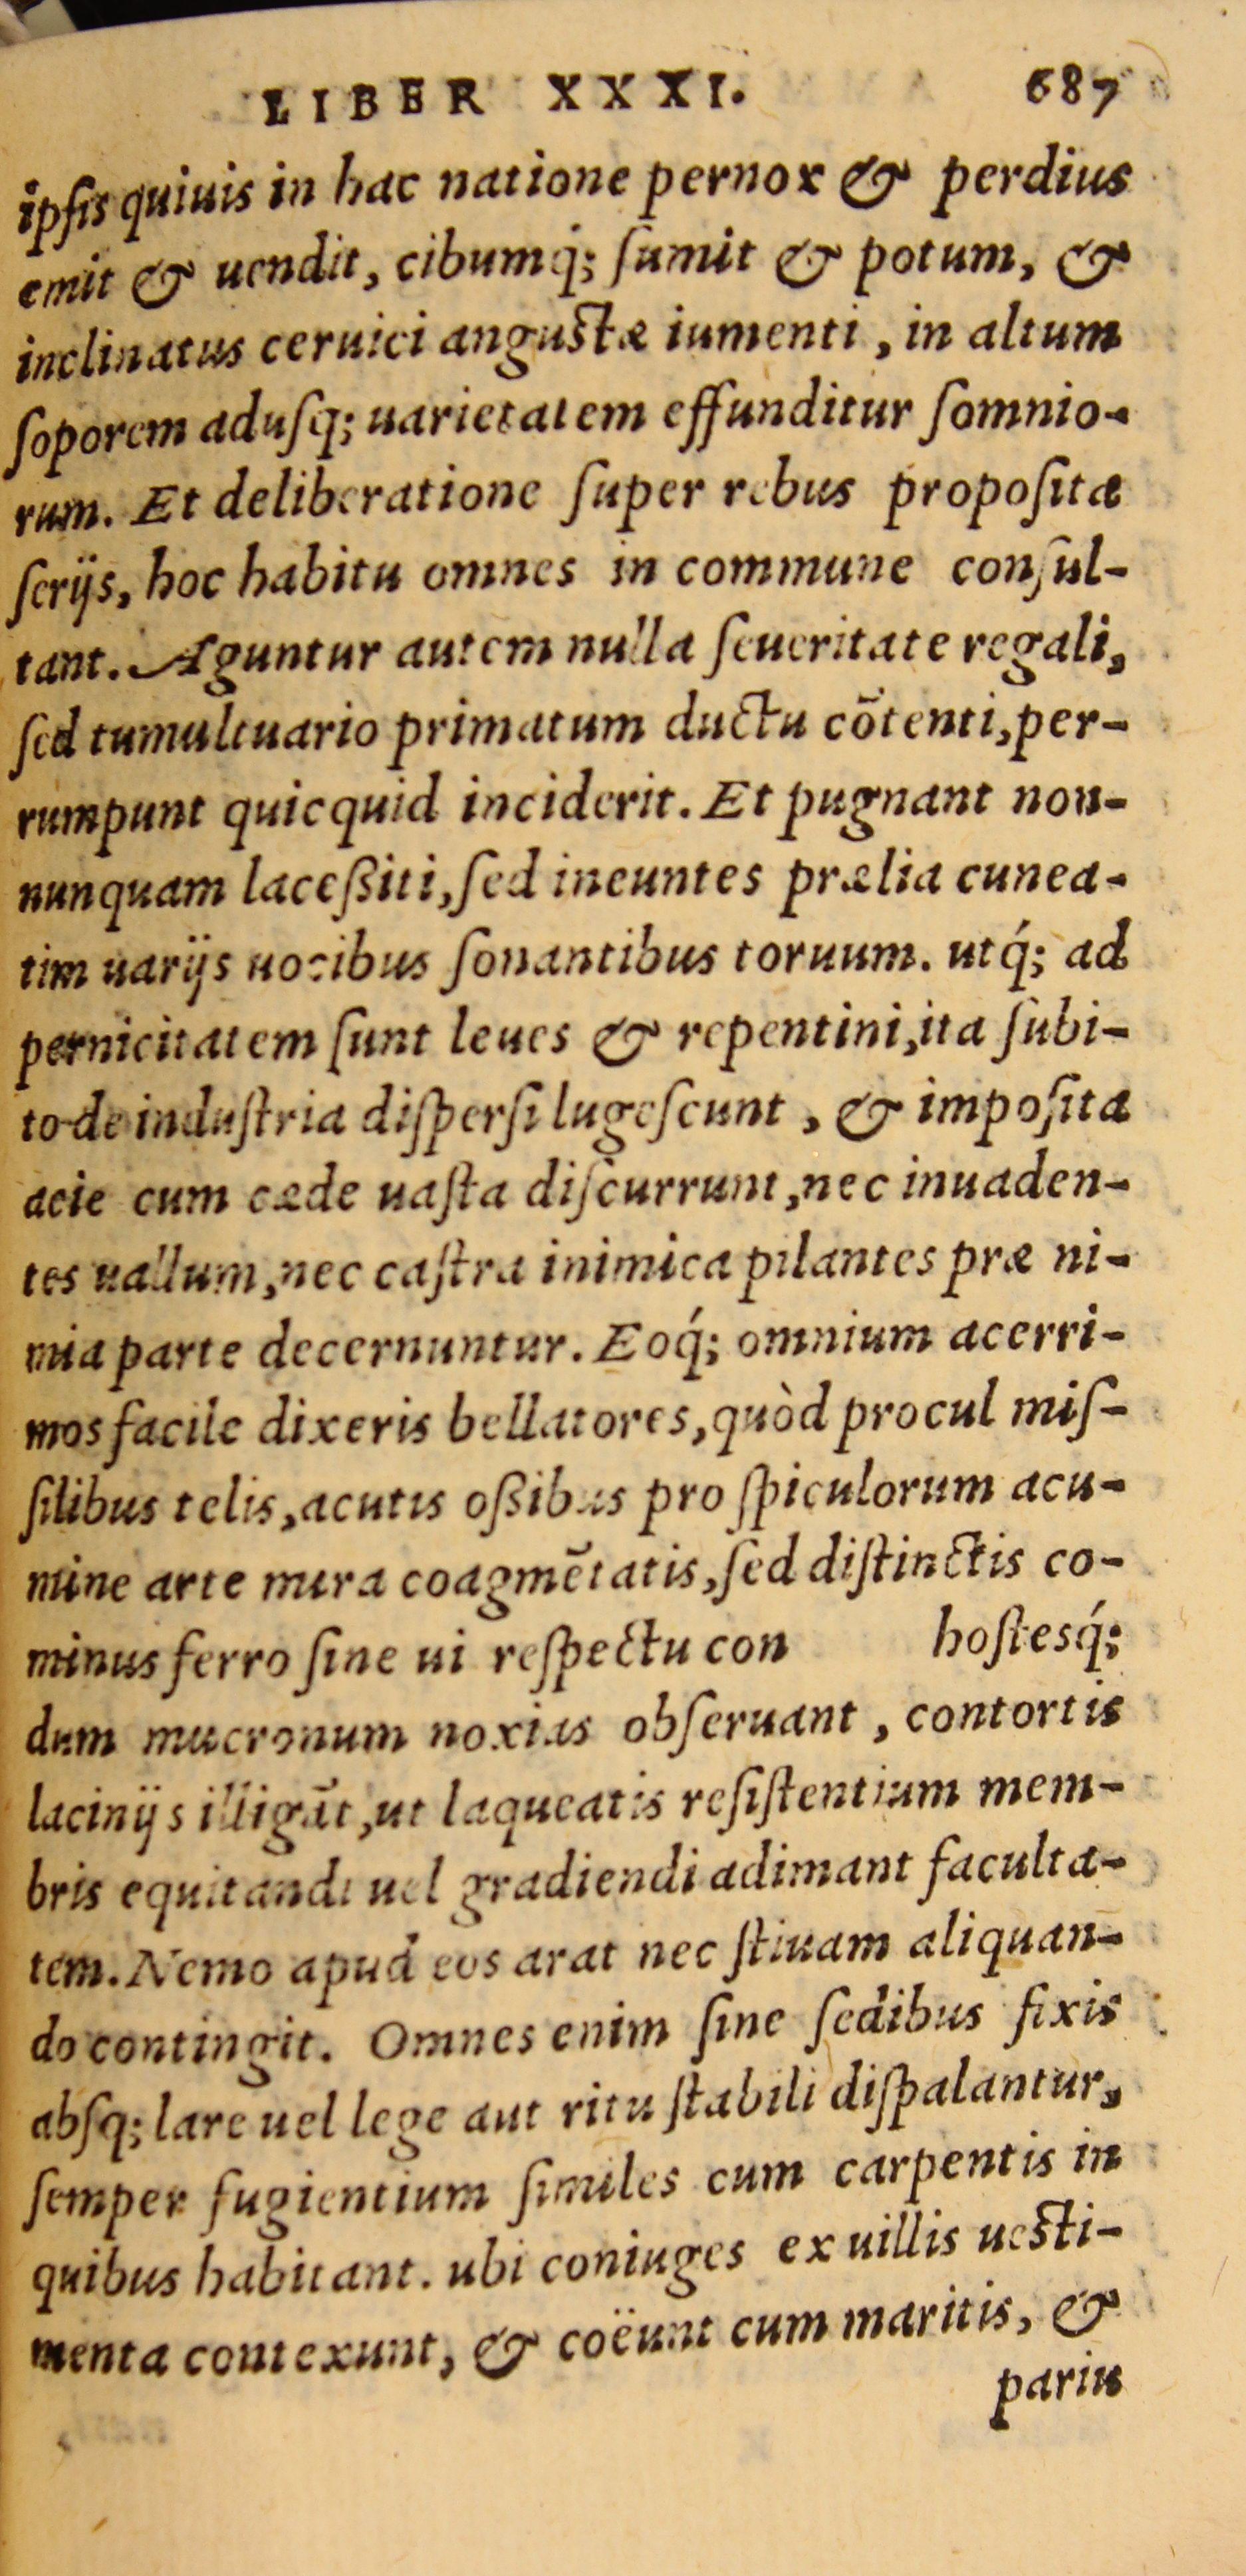 LIBER XXXI. 687
ipſis quiuis in hac natione pernox & perdius
emit & uendit, cibumq́; ſumit & potum, &
inclinatus ceruici anguſtæ iumenti, in altum
ſoporem aduſq; uarietatem effunditur ſomnio-
rum. Et deliberatione ſuper rebus propoſita
ſerijs, hoc habitu omnes in commune conſul-
tant. Aguntur autem nulla ſeueritate regali,
ſed tumultuario primatum ductu cõtenti, per-
rumpunt quicquid inciderit. Et pugnant non-
nunquam laceßiti, ſed ineuntes prælia cunea-
tim uarijs uocibus ſonantibus toruum. utq́; ad
pernicitatem ſunt leues & repentini, ita ſubi-
to de induſtria diſperſi lugeſcunt, & impoſita
acie cum cæde uaſta diſcurrunt, nec inuaden-
tes uallum, nec caſtra inimica pilantes præ ni-
mia parte decernuntur. Eoq́; omnium acerri-
mos facile dixeris bellatores, quòd procul miſ-
ſilibus telis, acutis oßibus pro ſpiculorum acu-
mine arte mira coagmẽtatis, ſed diſtinctis co-
minus ferro ſine ui reſpectu con hoſtesq́;
dum mucronum noxias obſeruant, contortis
lacinijs illigãt, ut laqueatis reſiſtentium mem-
bris equitandi uel gradiendi adimant faculta-
tem. Nemo apud eos arat nec ſtiuam aliquan-
do contingit. Omnes enim ſine ſedibus fixis
abſq; lare uel lege aut ritu ſtabili diſpalantur,
ſemper fugientium ſimiles cum carpentis in
quibus habitant. ubi coniuges ex uillis ueſti-
menta contexunt, & coëunt cum maritis, &
pariu